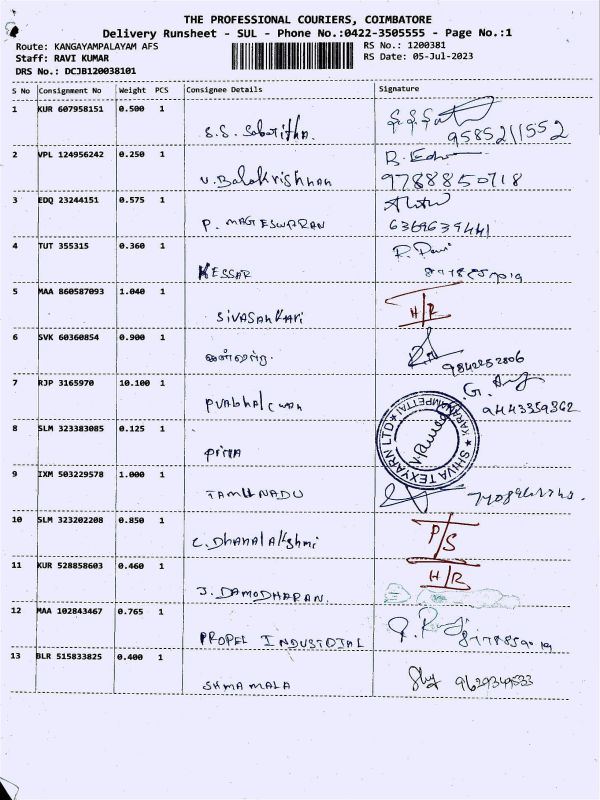 THE PROFESSIONAL COURIERS, COIMBATORE
Delivery Runsheet - SUL - Phone No.:0422-3505555 - Page No.:1
Route: KANGAYAMPALAYAM AFS RS No.: 1200381
Staff: RAVI KUMAR RS Date: 05-Jul-2023
DRS No.: DCJB120038101
S No Consignment No Weight PCS Consignee Details Signature
1 KUR 607958151 0.500 1
S.S. Sabaritha. 9585211552
2 VPL 124956242 0.250 1
V. Balakrishnan 9788850718
3 EDQ 23244151 0.575 1
P. MAGESWARAN 6369639441
4 TUT 355315 0.360 1
KESSAR
5 MAA 860587093 1.040 1 H/R
SIVASANKARI
6 SVK 60360854 0.900 1
9842252806
7 RJP 3165970 10.100 1
Prabhakaran 9443359362
8 SLM 323383085 0.125 1
SHIVA TEXYARN LTD KARANAMPETTAI
PRIYA
9 IXM 503229578 1.000 1
TAMILNADU
10 SLM 323202208 0.850 1 P/S
C. Dhanalakshmi
11 KUR 528858603 0.460 1 H/R
J. DAMODHARAN.
12 MAA 102843467 0.765 1
PROPEL INDUSTRIAL
13 BLR 515833825 0.400 1
9629349533